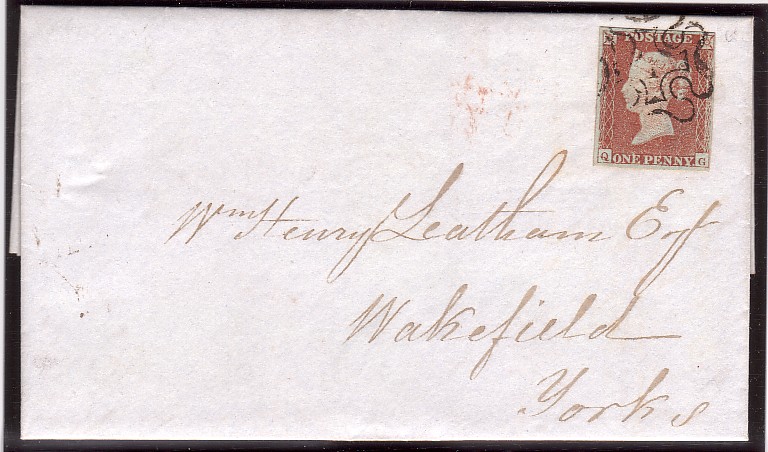 POSTAGE
Q ONE PENNY G
Wm Henry Leatham Esqr
Wakefield
Yorks